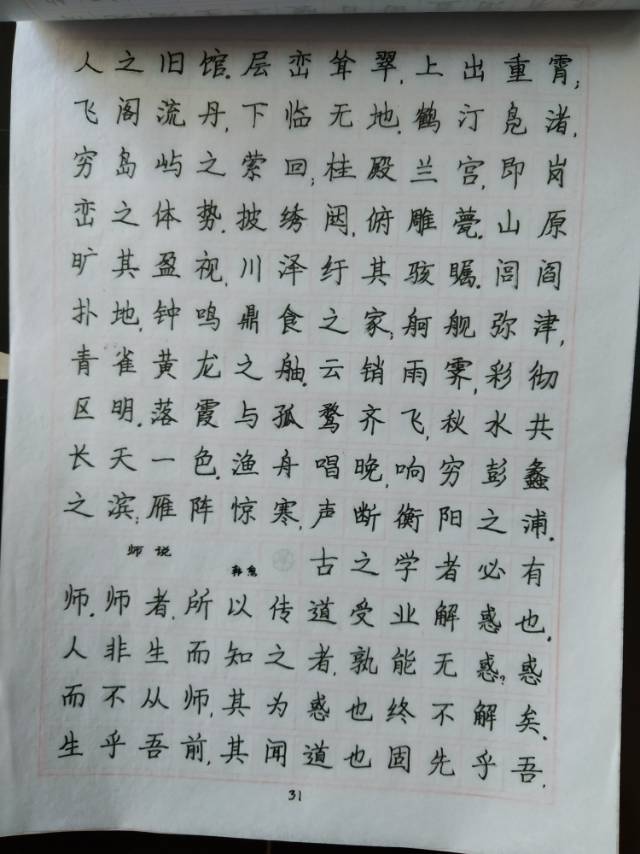 人之旧馆。层峦耸翠，上出重霄；
飞阁流丹，下临无地。鹤汀凫渚，
穷岛屿之萦回；桂殿兰宫，即岗
峦之体势。披绣闼，俯雕甍。山原
旷其盈视，川泽纡其骇瞩。闾阎
扑地，钟鸣鼎食之家；舸舰弥津，
青雀黄龙之舳。云销雨霁，彩彻
区明。落霞与孤鹜齐飞，秋水共
长天一色。渔舟唱晚，响穷彭蠡
之滨；雁阵惊寒，声断衡阳之浦。
师说
韩愈
古之学者必有
师。师者，所以传道受业解惑也。
人非生而知之者，孰能无惑？惑
而不从师，其为惑也终不解矣。
生乎吾前，其闻道也固先乎吾，
31